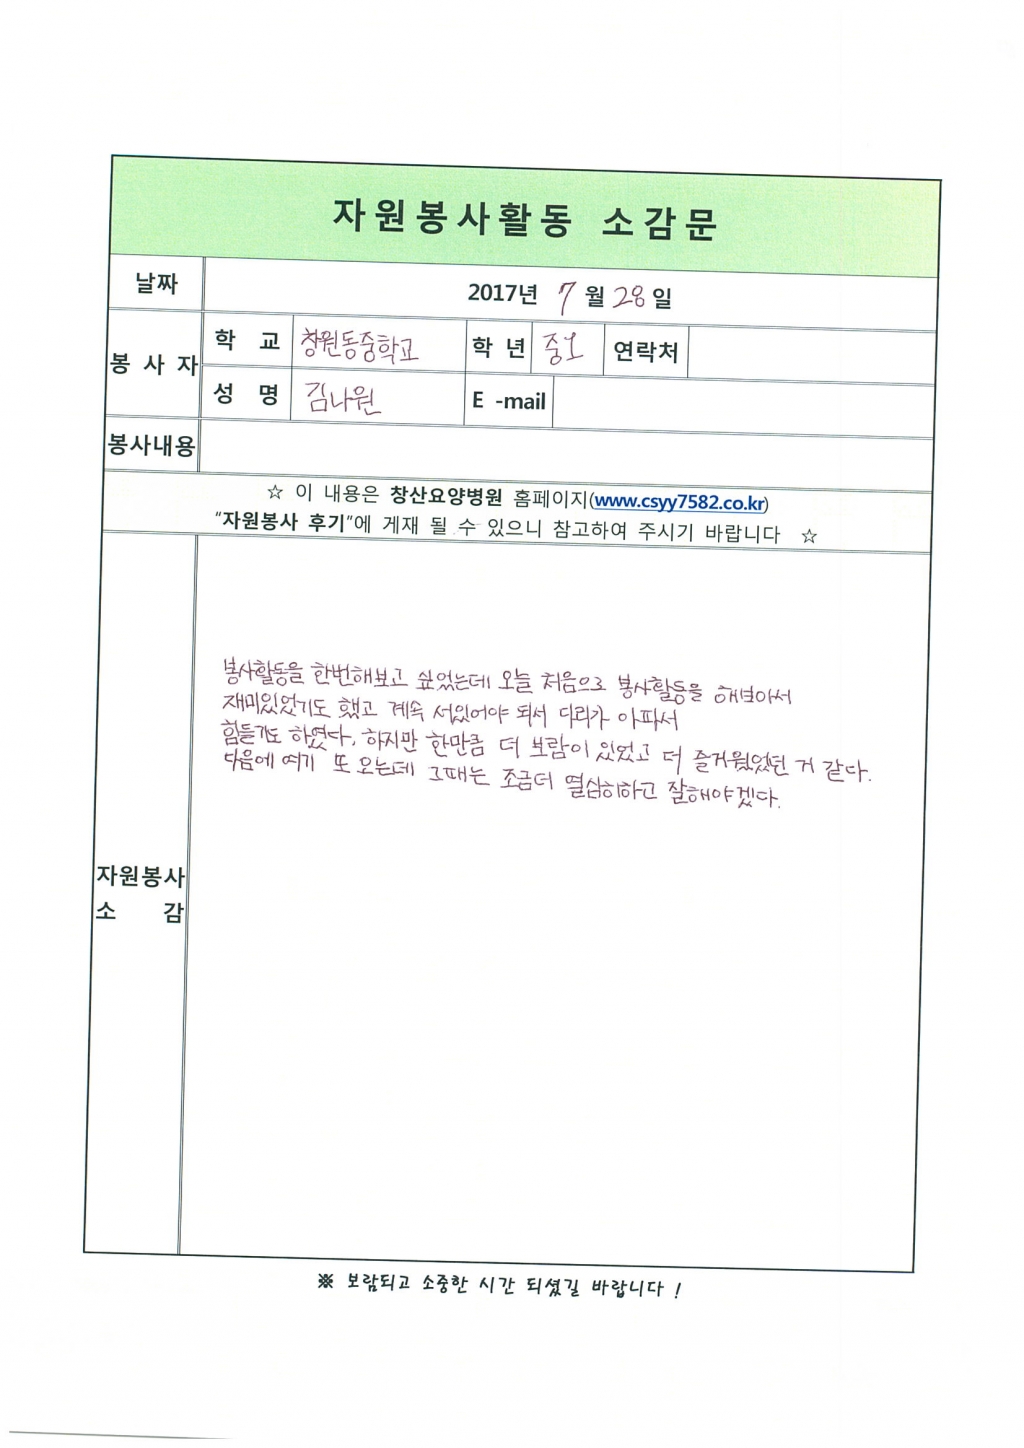 자원봉사활동 소감문
날짜 2017년 7월 28일
봉 사 자 학 교 창원동중학교 학 년 연락처
성 명 김나원 E -mail
봉사내용
☆ 이 내용은 창산요양병원 홈페이지(www.csyy7582.co.kr)
"자원봉사 후기"에 게재 될 수 있으니 참고하여 주시기 바랍니다 ☆
봉사활동을 한번해보고 싶었는데 오늘 처음으로 봉사활동을 해보아서
재미있었기도 했고 계속 서있어야 되서 다리가 아파서
힘들기도 하였다. 하지만 한만큼 더 보람이 있었고 더 즐거웠었던 거 같다.
다음에 여기 또 오는데 그때는 조금더 열심히하고 잘해야겠다.
자원봉사
소 감
※ 보람되고 소중한 시간 되셨길 바랍니다 !